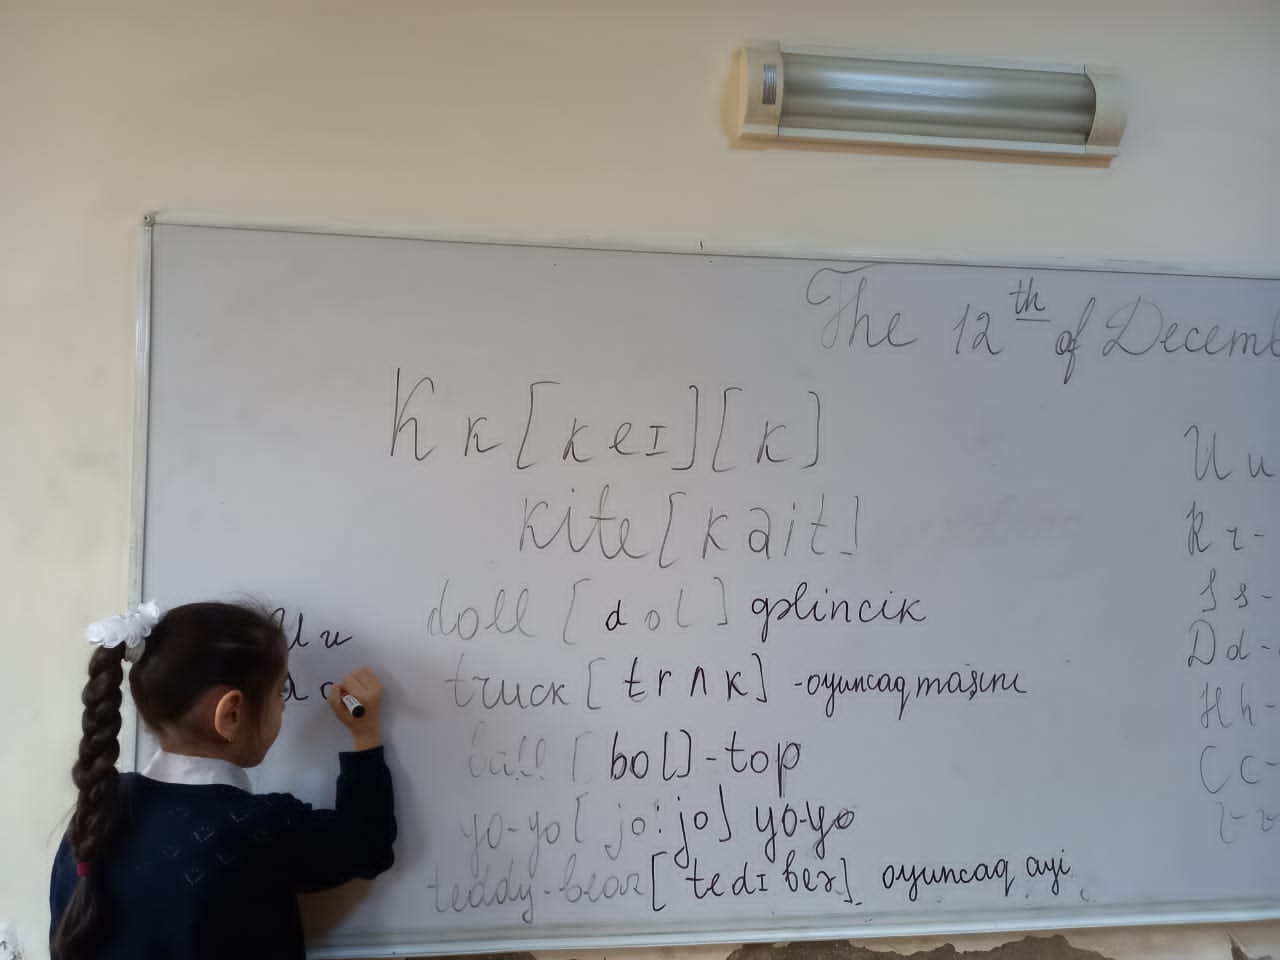 The 12th of Decemb
K k [keɪ] [k]
kite [kait]
doll [dol] gəlincik
truck [trʌk] - oyuncaq maşını
ball [bol] - top
yo-yo [jo:jo] yo-yo
teddy-bear [tedɪ beə] oyuncaq ayi
U u
U u
R r -
S s -
D d -
H h -
C c -